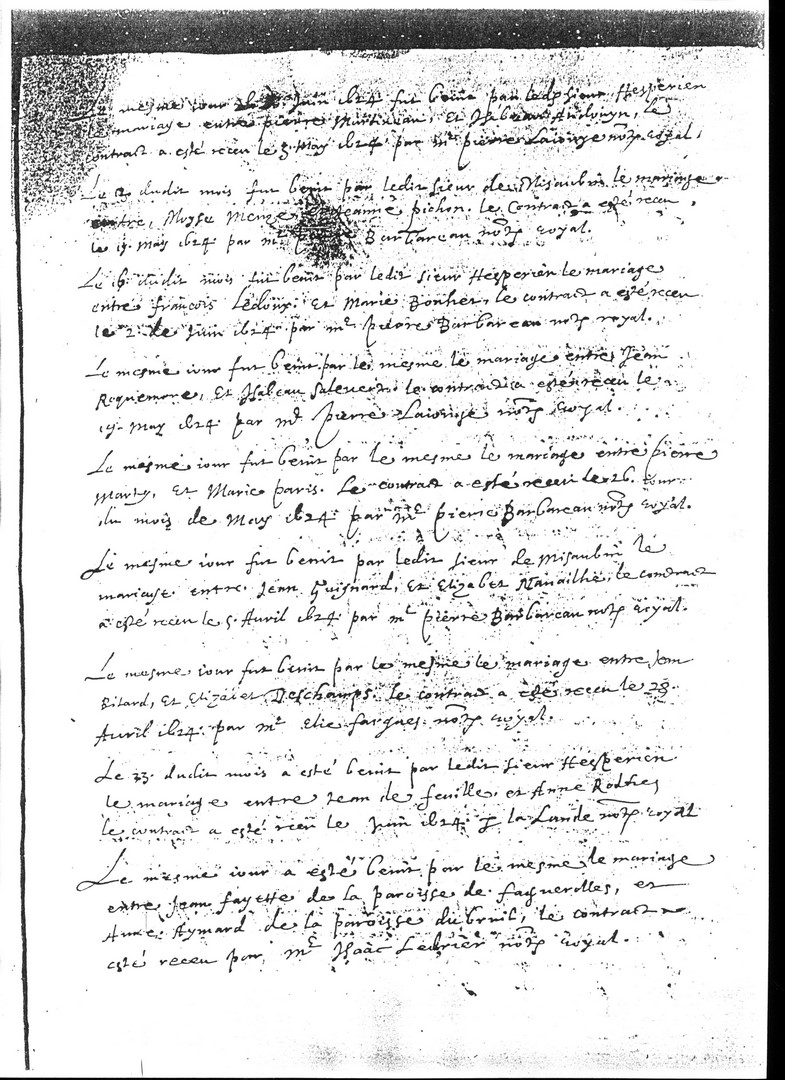 Le mesme iour Juin 1624 fut benit par ledit sieur Hesperien
le mariage entre pierre Martineau, Et Isabeau Audouyn, le
contract a esté receu le 3. May 1624 par mr pierre Laiouye notre royal.
Le dudit mois fut benit par ledit sieur de Misaubin le mariage
entre, Moyse Jeanne pichon. le Contract a esté receu
le 19. May 1624 par mr Barbareau notre royal.
Le 16 dudit mois fut benit par ledit sieur Hesperien le mariage
entre françois Ledoux, Et Marie Bonhet, le contract a esté receu
le 2. de Juin 1624 par mr pierre Barbareau notre royal.
Le mesme iour fut benit par le mesme le mariage entre Jean
Roquemore, Et Isabeau le contract a esté receu le
19. May 1624 par mr pierre Laiouye notre royal.
Le mesme iour fut benit par le mesme le mariage entre pierre
Marty, Et Marie paris. Le contract a esté receu le 26. iour
du mois de May 1624 par mr pierre Barbareau notre royal.
Le mesme iour fut benit par ledit sieur de Misaubin le
mariage entre Jean Guignard, Et Elizabet Nauailhe, le contract
a esté receu le 5. Auril 1624 par mr pierre Barbareau notre royal.
Le mesme iour fut benit par le mesme le mariage entre Jean
Bitard, Et Elizabet Deschamps. le contract a esté receu le 28.
Auril 1624 par mr Elie fargues notre royal.
Le 23. dudit mois a esté benit par ledit sieur Hesperien
le mariage entre Jean de feuille, et Anne Rodhes
le contract a esté receu le Juin 1624 p la Lande notre royal
Le mesme iour a esté benit par le mesme le mariage
entre Jean fayette de la paroisse de faguerolles, et
Anne Aymard de la paroisse du breuil, le contract a
esté receu par mr Isaac Ledrier notre royal.